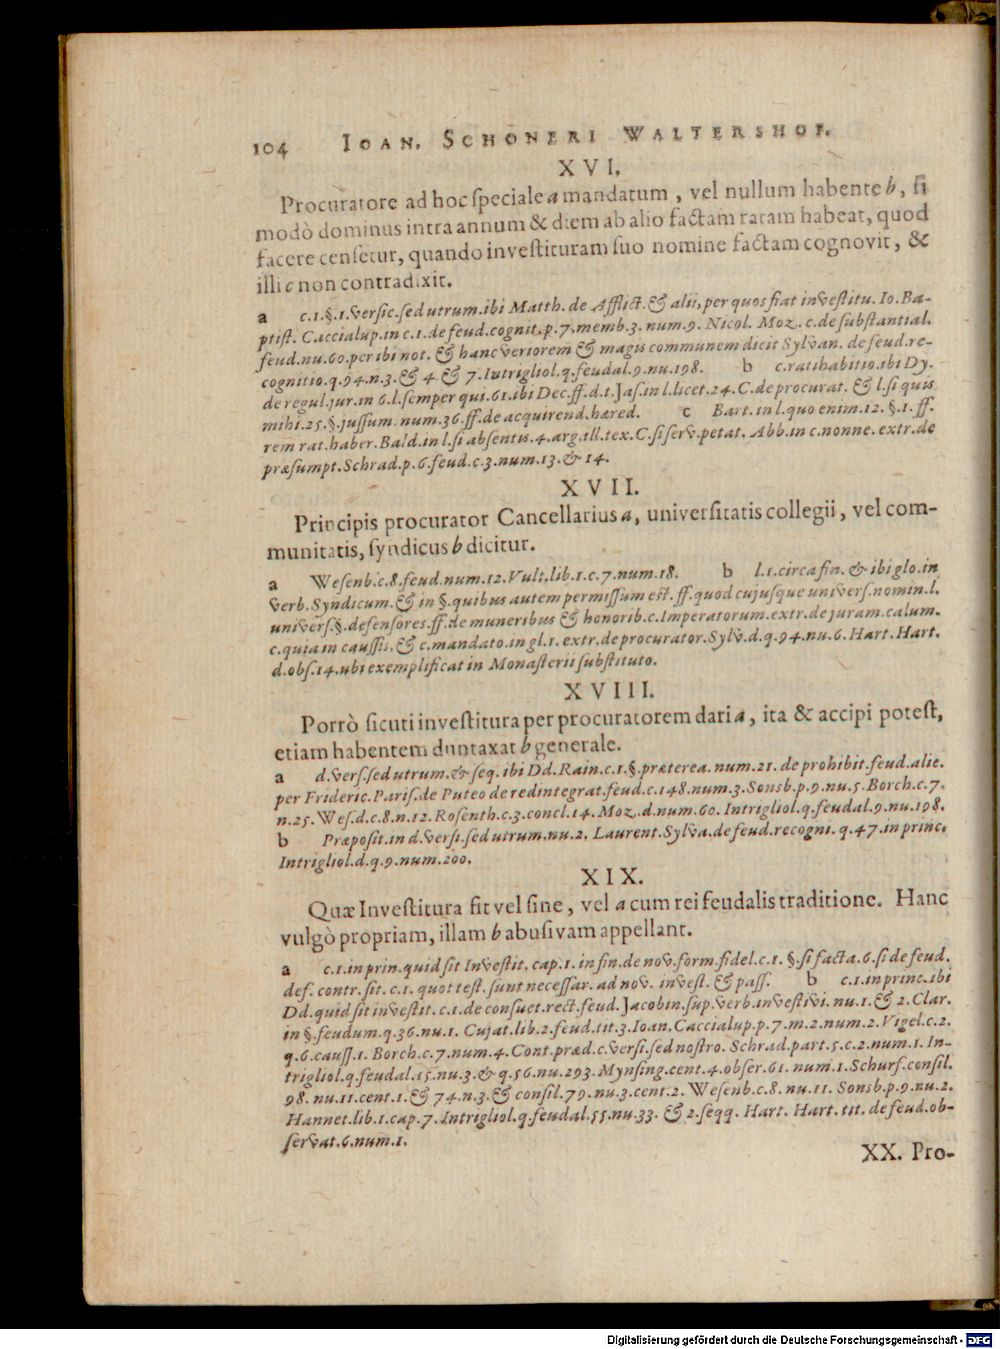 104 IOAN. SCHONERI WALTERSHOF.
XVI.
Procuratore ad hoc speciale a mandatum, vel nullum habente b, si
modò dominus intra annum & diem ab alio factam ratam habeat, quod
facere censetur, quando investituram suo nomine factam cognovit, &
illi c non contradixit.
a c.1.§.1.versic.sed utrum.ibi Matth. de Afflict. & alii, per quos fiat investitu. Io. Ba-
ptist. Caccialup.in c.1.de feud.cognit.p.7.memb.3.num.9. Nicol. Moz. c.de substantial.
feud.nu.60.per ibi not. & hanc veriorem & magis communem dicit Sylvan. de feud.re-
cognitio.q.94.n.3.& 4.& 7.Intrigliol.q.feudal.9.nu.198. b c.ratihabitio.ibi Dy.
de regul.jur.in 6.l.semper qui.61.ibi Dec.ff.d.t.Jas.in l.licet.24.C.de procurat. & l.si quis
mihi.25.§.jussum.num.36.ff.de acquirend.hæred. c Bart.in l.quo enim.12.§.1.ff.
rem rat.haber.Bald.in l.si absentis.4.arg.ill.tex.C.si serv.petat. Abb.in c.nonne.extr.de
præsumpt.Schrad.p.6.feud.c.3.num.13.& 14.
XVII.
Principis procurator Cancellarius a, universitatis collegii, vel com-
munitatis, syndicus b dicitur.
a Wesenb.c.8.feud.num.12.Vult.lib.1.c.7.num.18. b l.1.circa fin. & ibi glo.in
verb.Syndicum.& in §.quibus autem permissum est.ff.quod cujusque univers.nomin.l.
univers.§.defensores.ff.de muneribus & honorib.c.Imperatorum.extr.de juram.calum.
c.quia in caussis.& c.mandato.in gl.1.extr.de procurator.Sylv.d.q.94.nu.6.Hart.Hart.
d.obs.14.ubi exemplificat in Monasterii substituto.
XVIII.
Porrò sicuti investitura per procuratorem dari a, ita & accipi potest,
etiam habentem duntaxat b generale.
a d.vers.sed utrum.& seq.ibi Dd.Rain.c.1.§.præterea.num.21.de prohibit.feud.alie.
per Frideric.Paris.de Puteo de redintegrat.feud.c.148.num.3.Sonsb.p.9.nu.5.Borch.c.7.
n.25.Wes.d.c.8.n.12.Rosenth.c.3.concl.14.Moz.d.num.60. Intrigliol.q.feudal.9.nu.198.
b Præposit.in d.versi.sed utrum.nu.2. Laurent.Sylva.de feud.recogni.q.47.in princ.
Intrigliol.d.q.9.num.200.
XIX.
Quæ Investitura fit vel sine, vel a cum rei feudalis traditione. Hanc
vulgò propriam, illam b abusivam appellant.
a c.1.in prin.quid sit Investit.cap.1.in fin.de nov.form.fidel.c.1.§.si facta.6.si de feud.
def.contr.sit.c.1.quot test.sunt necessar. ad nov. invest. & pass. b c.1.in princ.ibi
Dd.quid sit investit.c.1.de consuet.rect.feud.Jacobin.sup.verb.investivi.nu.1.& 2.Clar.
in §.feudum.q.36.nu.1. Cujat.lib.2.feud.tit.3.Ioan.Caccialup.p.7.m.2.num.2.Vigel.c.2.
q.6.causs.1. Borch.c.7.num.4.Cont.præd.c.versi.sed nostro. Schrad.part.5.c.2.num.1. In-
trigliol.q.feudal.15.nu.3.& q.56.nu.293.Mynsing.cent.4.obser.61.num.1.Schurf.consil.
98.nu.11.cent.1.& 74.n.3.& consil.79.nu.3.cent.2.Wesenb.c.8.nu.11. Sonsb.p.9.nu.2.
Hannet.lib.1.cap.7.Intrigliol.q.feudal.55.nu.33. & 2.seqq. Hart. Hart. tit. de feud.ob-
servat.6.num.1.
XX. Pro-
Digitalisierung gefördert durch die Deutsche Forschungsgemeinschaft - DFG